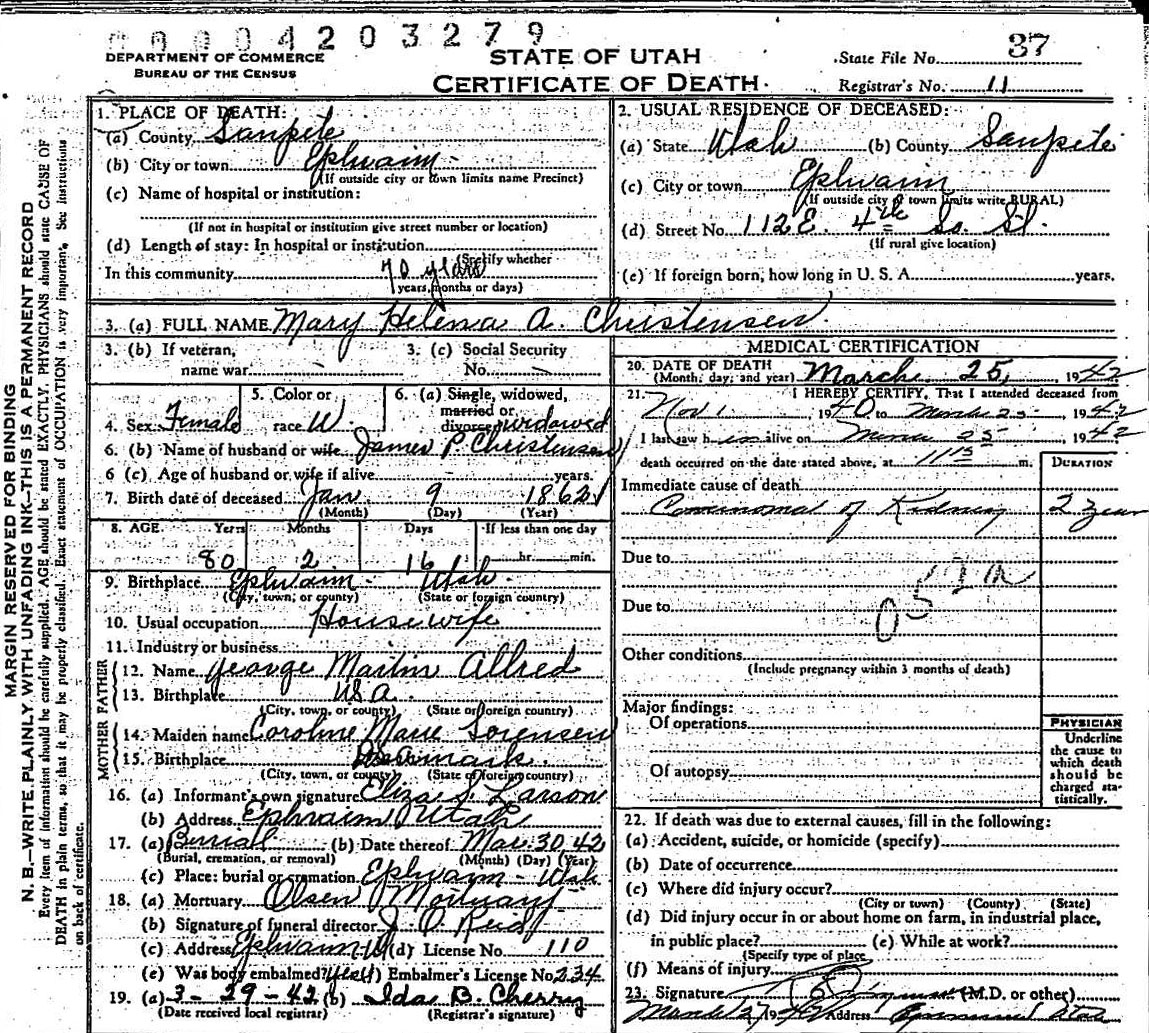 0004203279
DEPARTMENT OF COMMERCE
BUREAU OF THE CENSUS
STATE OF UTAH
CERTIFICATE OF DEATH
State File No. 37
Registrar's No. 11
MARGIN RESERVED FOR BINDING
N. B.—WRITE PLAINLY WITH UNFADING INK—THIS IS A PERMANENT RECORD
Every item of information should be carefully supplied. AGE should be stated EXACTLY. PHYSICIANS should state CAUSE OF
DEATH in plain terms, so that it may be properly classified. Exact statement of OCCUPATION is very important. See instructions
on back of certificate.
1. PLACE OF DEATH:
(a) County Sanpete
(b) City or town Ephraim
(If outside city or town limits name Precinct)
(c) Name of hospital or institution:
(If not in hospital or institution give street number or location)
(d) Length of stay: In hospital or institution
(Specify whether
In this community 70 years
years, months or days)
2. USUAL RESIDENCE OF DECEASED:
(a) State Utah (b) County Sanpete
(c) City or town Ephraim
(If outside city or town limits write RURAL)
(d) Street No. 112 E. 4th So. St.
(If rural give location)
(e) If foreign born, how long in U. S. A. years.
3. (a) FULL NAME Mary Helena A. Christensen
3. (b) If veteran, name war
3. (c) Social Security No.
4. Sex Female
5. Color or race W.
6. (a) Single, widowed, married or divorced widowed
6. (b) Name of husband or wife James P. Christensen
6 (c) Age of husband or wife if alive years.
7. Birth date of deceased Jan 9 1862
(Month) (Day) (Year)
8. AGE Years Months Days If less than one day
80 2 16 hr. min.
9. Birthplace Ephraim Utah
(City, town, or county) (State or foreign country)
10. Usual occupation Housewife
11. Industry or business
FATHER
12. Name George Martin Allred
13. Birthplace USA
(City, town, or county) (State or foreign country)
MOTHER
14. Maiden name Caroline Marie Sorensen
15. Birthplace Denmark
(City, town, or county) (State or foreign country)
16. (a) Informant's own signature Eliza S. Larson
(b) Address Ephraim Utah
17. (a) Burial (b) Date thereof Mar. 30, 42
(Burial, cremation, or removal) (Month) (Day) (Year)
(c) Place: burial or cremation Ephraim - Utah
18. (a) Mortuary Olsen Mortuary
(b) Signature of funeral director J. O. Reid
(c) Address Ephraim U (d) License No. 110
(e) Was body embalmed? Yes (f) Embalmer's License No. 234
19. (a) 3-29-42 (b) Ida B. Cherry
(Date received local registrar) (Registrar's signature)
MEDICAL CERTIFICATION
20. DATE OF DEATH
(Month, day, and year) March 25, 1942
21. I HEREBY CERTIFY, That I attended deceased from
Nov 1 1940 to March 25 1942
I last saw h alive on March 25 1942
death occurred on the date stated above, at 11 15 m.
DURATION
Immediate cause of death
of Kidney 2 year
Due to
Due to
Other conditions
(Include pregnancy within 3 months of death)
Major findings:
Of operations
Of autopsy
PHYSICIAN
Underline
the cause to
which death
should be
charged sta-
tistically.
22. If death was due to external causes, fill in the following:
(a) Accident, suicide, or homicide (specify)
(b) Date of occurrence
(c) Where did injury occur?
(City or town) (County) (State)
(d) Did injury occur in or about home on farm, in industrial place,
in public place? (e) While at work?
(Specify type of place
(f) Means of injury
23. Signature (M.D. or other)
March 27, 1942 Address Utah